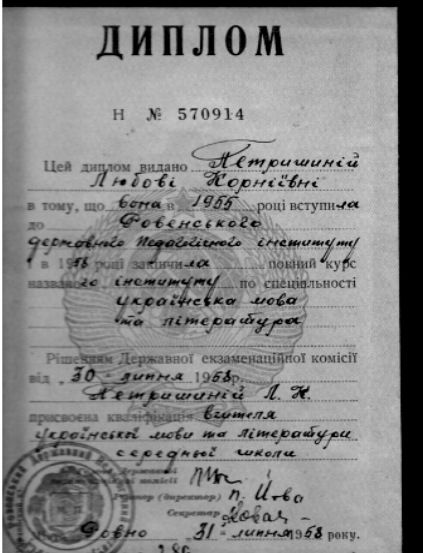 ДИПЛОМ
Н № 570914
Цей диплом видано Петришиній
Любові Корніївні
в тому, що вона в 1955 році вступила
до Ровенського
державного педагогічного інституту
і в 1958 році закінчила повний курс
названого інституту по спеціальності
українська мова
та література
Рішенням Державної екзаменаційної комісії
від „30 липня 1958р.
Петришиній Л. К.
присвоєна кваліфікація вчителя
української мови та літератури
середньої школи
Державної
екзаменаційної комісії
Ректор (директор)
Секретар
Ровно „31 липня 1958 року.